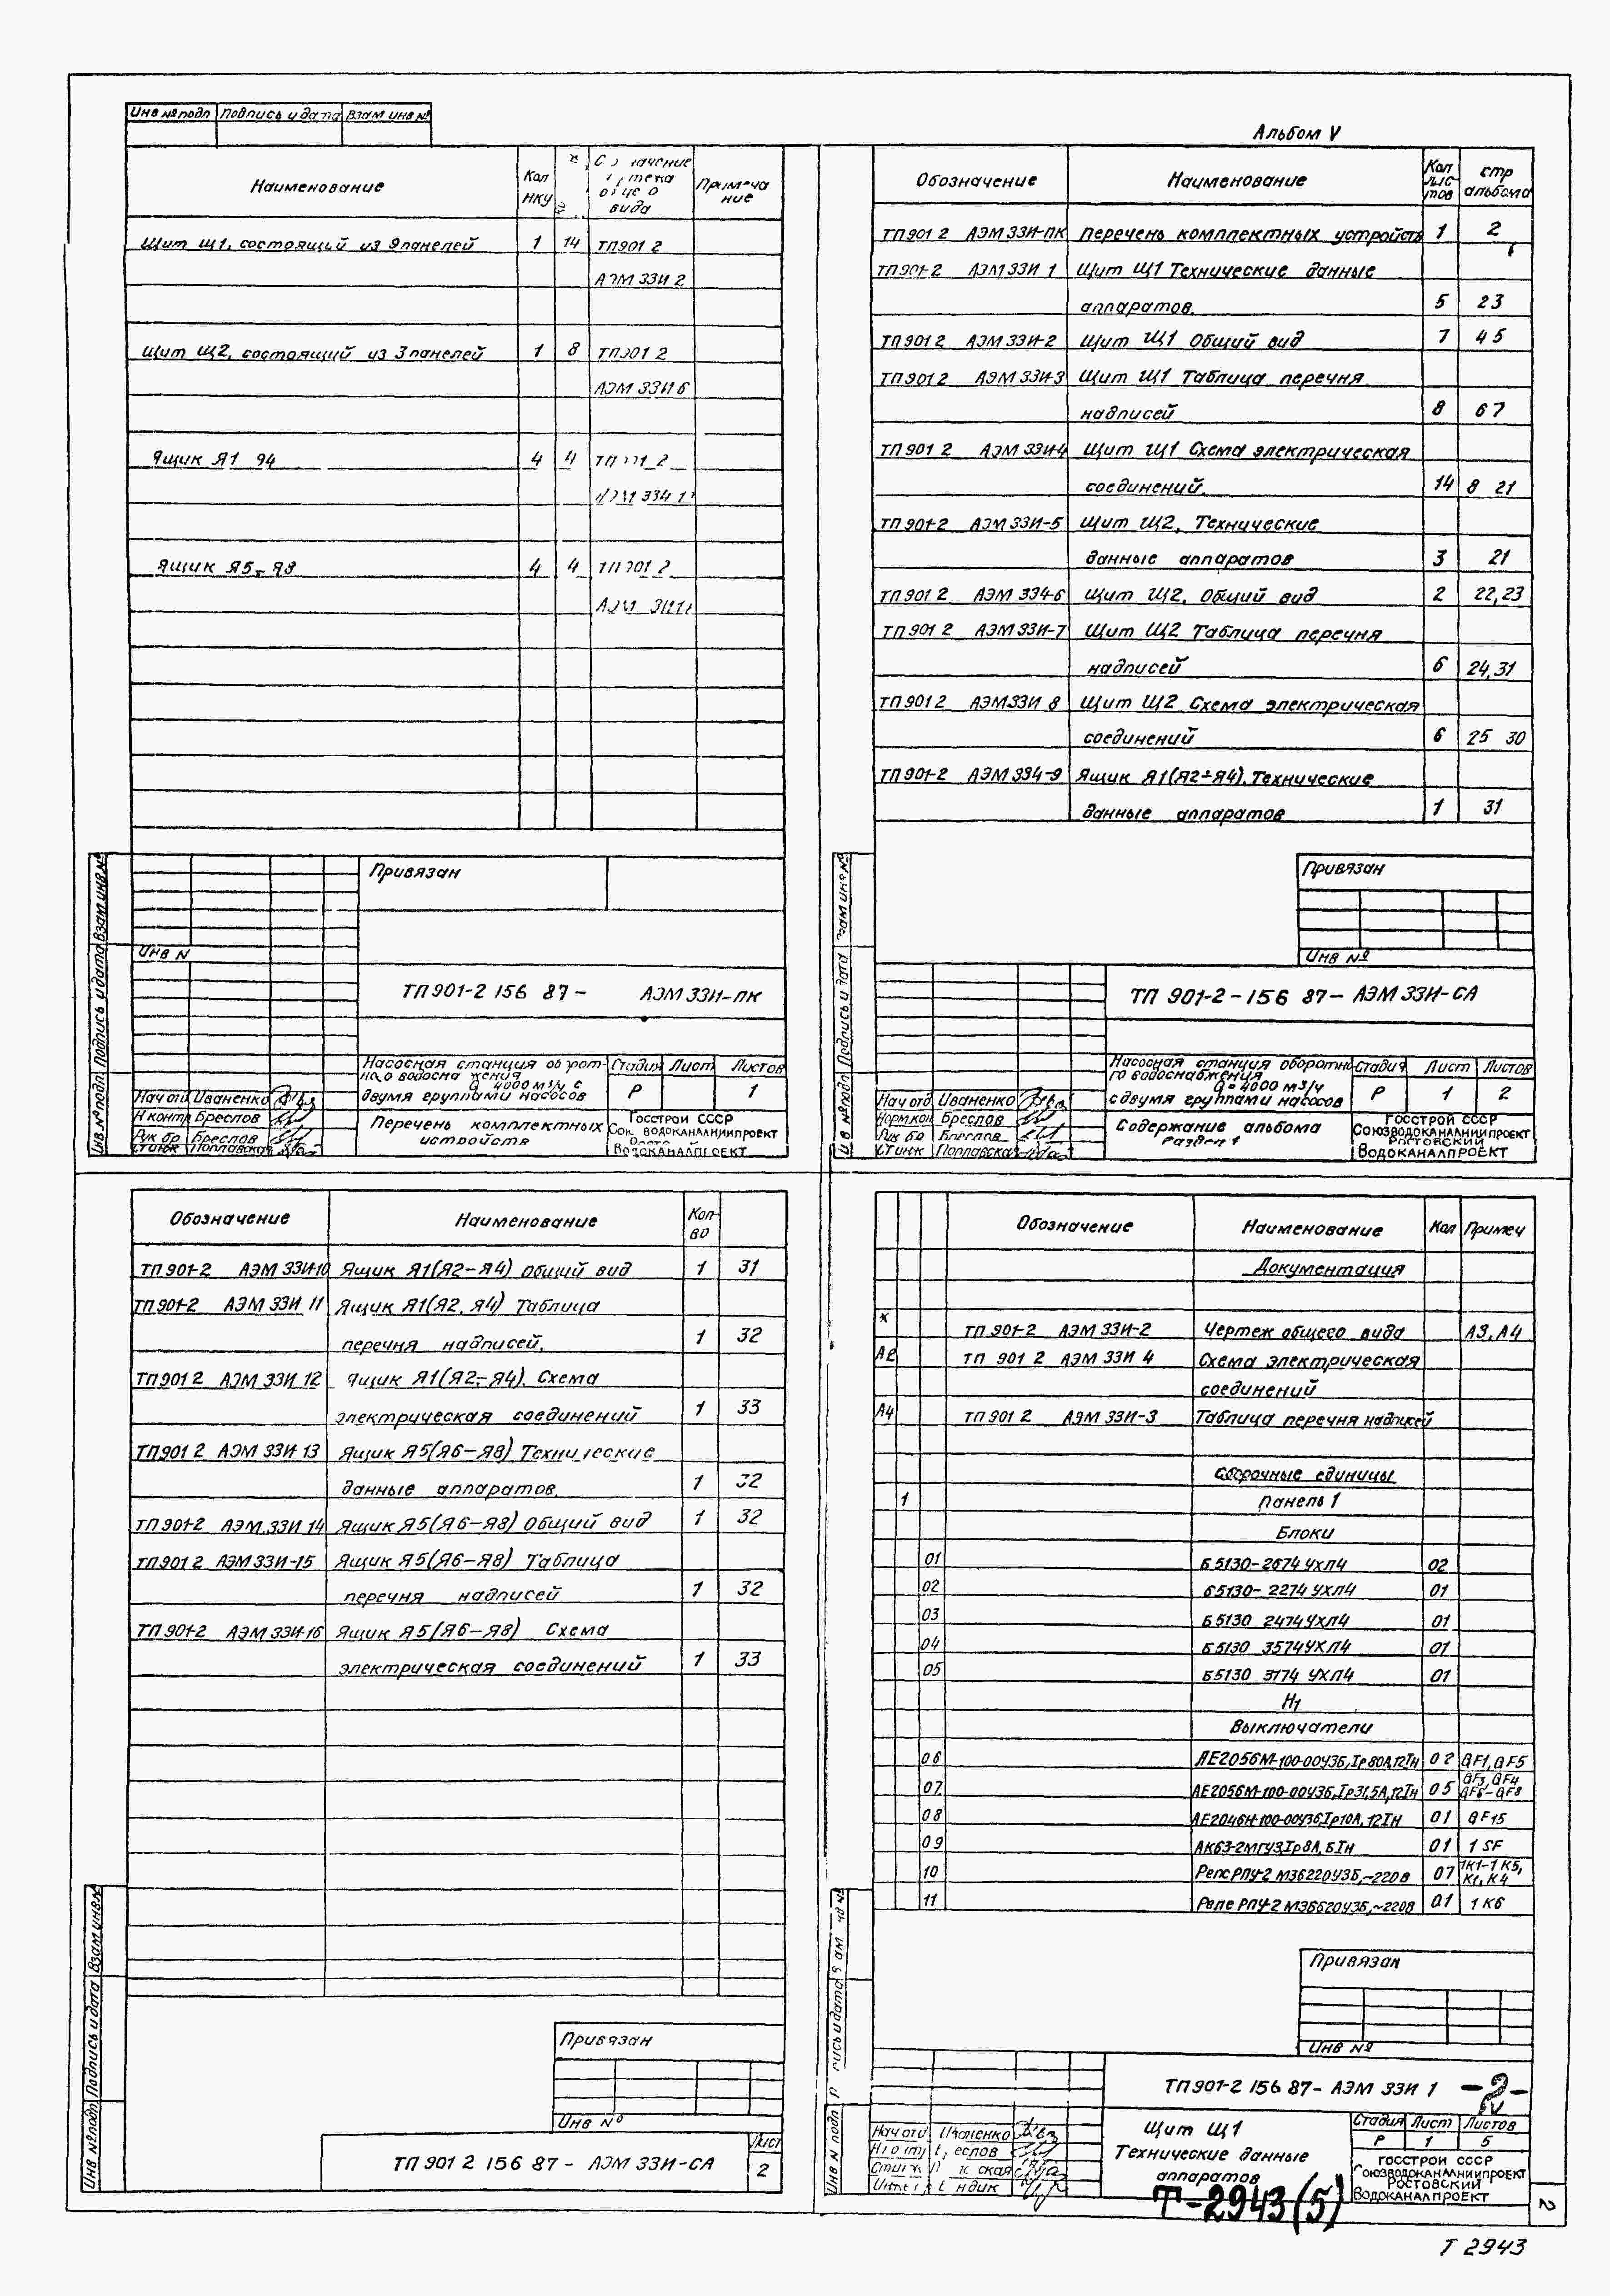 Инв № подл Подпись и дата Взам инв №
Наименование Кол НКУ вида Примеча ние
Щит Щ1, состоящий из 9 панелей 1 14 ТП901 2
АЭМ 33И 2
Щит Щ2, состоящий из 3 панелей 1 8 ТП901 2
АЭМ 33И 6
Ящик Я1 94 4 4
Ящик Я5-Я8 4 4 ТП901 2
Привязан
Инв №подл Подпись и дата Взам инв №
Инв N
ТП 901-2 156 87- АЭМ 33И-ПК
Нач отд Иваненко
Н контр Бреслов
Рук бр Бреслов
Ст инж Поплавская
Насосная станция
Q 4000 м3/ч с
двумя группами насосов
Стадия Лист Листов
Р 1
Перечень комплектных
устройств
Госстрой СССР
Водоканалпроект
Альбом V
Обозначение Наименование Кол лис- тов стр альбома
ТП 901 2 АЭМ 33И-ПК Перечень комплектных устройств 1 2
ТП 901-2 АЭМ 33И 1 Щит Щ1 Технические данные
аппаратов. 5 2 3
ТП 901 2 АЭМ 33И-2 Щит Щ1 Общий вид 7 4 5
ТП 901 2 АЭМ 33И-3 Щит Щ1 Таблица перечня
надписей 8 6 7
ТП 901 2 АЭМ 33И-4 Щит Щ1 Схема электрическая
соединений. 14 8 21
ТП 901-2 АЭМ 33И-5 Щит Щ2, Технические
данные аппаратов 3 21
ТП 901 2 АЭМ 334-6 Щит Щ2. Общий вид 2 22,23
ТП 901 2 АЭМ 33И-7 Щит Щ2 Таблица перечня
надписей 6 24,31
ТП 901 2 АЭМ 33И 8 Щит Щ2 Схема электрическая
соединений 6 25 30
ТП 901-2 АЭМ 334-9 Ящик Я1(Я2÷Я4). Технические
данные аппаратов 1 31
Привязан
Инв №
ТП 901-2-156 87- АЭМ 33И-СА
Нач отд Иваненко
Норм кон Бреслов
Рук бр Бреслов
Ст инж Поплавская
Насосная станция оборотно
го водоснабжения
Q = 4000 м3/ч
с двумя группами насосов
Стадия Лист Листов
Р 1 2
Содержание альбома
Раздел 1
Госстрой СССР
Союзводоканалниипроект
Ростовский
Водоканалпроект
Обозначение Наименование Кол- во
ТП 901-2 АЭМ 33И-10 Ящик Я1(Я2-Я4) Общий вид 1 31
ТП 901-2 АЭМ 33И 11 Ящик Я1(Я2, Я4) Таблица
перечня надписей. 1 32
ТП 901 2 АЭМ 33И 12 Ящик Я1(Я2-Я4). Схема
электрическая соединений 1 33
ТП 901 2 АЭМ 33И 13 Ящик Я5(Я6-Я8)
данные аппаратов. 1 32
ТП 901-2 АЭМ 33И 14 Ящик Я5(Я6-Я8) Общий вид 1 32
ТП 901 2 АЭМ 33И-15 Ящик Я5(Я6-Я8) Таблица
перечня надписей 1 32
ТП 901-2 АЭМ 33И-16 Ящик Я5(Я6-Я8) Схема
электрическая соединений 1 33
Инв №подл Подпись и дата Взам инв №
Привязан
Инв №
ТП 901 2 156 87- АЭМ 33И-СА
Лист
2
Обозначение Наименование Кол Примеч
Документация
ж ТП 901-2 АЭМ 33И-2 Чертеж общего вида А3, А4
А2 ТП 901 2 АЭМ 33И 4 Схема электрическая
соединений
А4 ТП 901 2 АЭМ 33И-3 Таблица перечня надписей
Сборочные единицы
1 Панель 1
Блоки
01 Б5130-2674 УХЛ4 02
02 Б5130-2274 УХЛ4 01
03 Б5130 2474 УХЛ4 01
04 Б5130 3574 УХЛ4 01
05 Б5130 3174 УХЛ4 01
Н1
Выключатели
06 АЕ2056М-100-00У3Б, Iр80А, 12Iн 02 QF1, QF5
07 АЕ2056М-100-00У3Б, Iр31,5А, 12Iн 05 QF3, QF4, QF6-QF8
08 АЕ2046Н-100-00У3Б, Iр10А, 12Iн 01 QF15
09 АК63-2МГУ3, Iр8А, Б Iн 01 1 SF
10 Реле РПУ-2 М36220У3Б, ~220в 07 1К1-1К5, К1, К4
11 Реле РПУ-2 М36620У3Б, ~220в 01 1 К6
Привязан
Инв №
ТП 901-2 156 87- АЭМ 33И 1 -2-
Нач отд Иваненко
Щит Щ1
Технические данные
аппаратов
Стадия Лист Листов
Р 1 5
Госстрой СССР
Союзводоканалниипроект
Ростовский
Водоканалпроект
Т-2943(5)
2
Т 2943